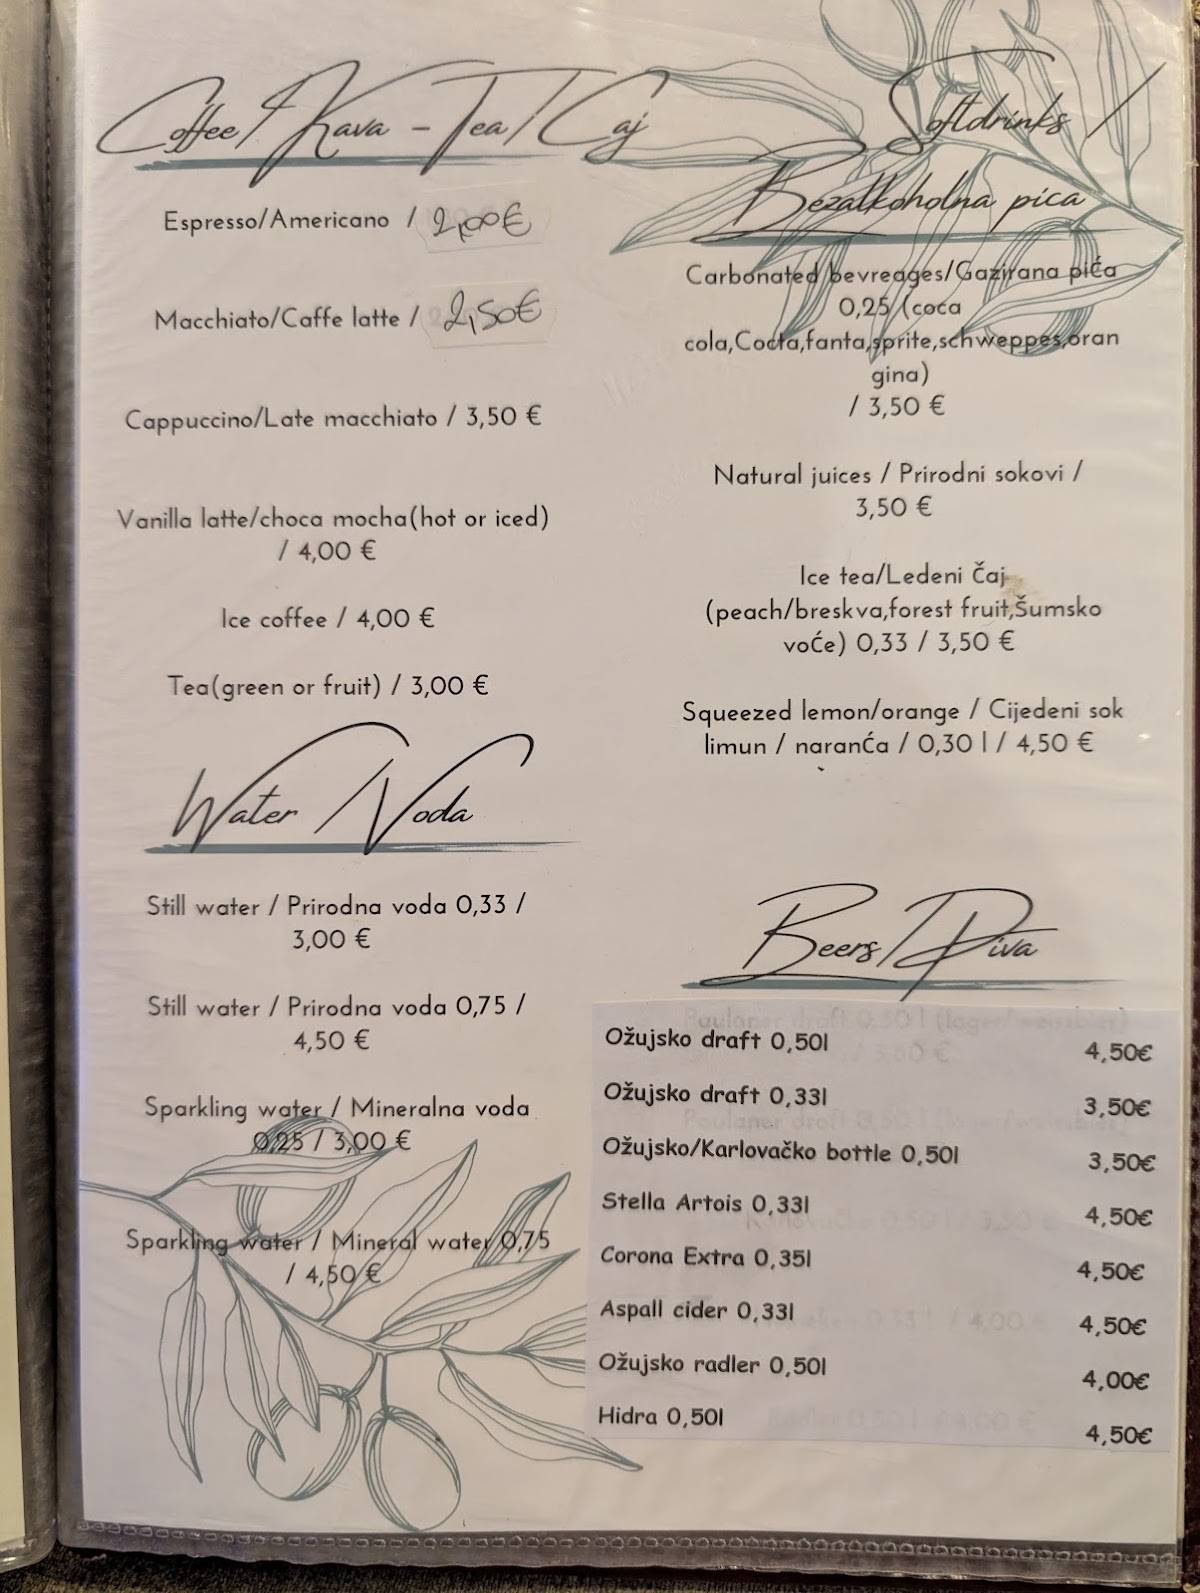 Coffee / Kava - Tea / Caj
Espresso/Americano / 2,00€
Macchiato/Caffe latte / 2,50€
Cappuccino/Late macchiato / 3,50 €
Vanilla latte/choca mocha(hot or iced)
/ 4,00 €
Ice coffee / 4,00 €
Tea(green or fruit) / 3,00 €
Water / Voda
Still water / Prirodna voda 0,33 /
3,00 €
Still water / Prirodna voda 0,75 /
4,50 €
Sparkling water / Mineralna voda
0,25 / 3,00 €
Sparkling water / Mineral water 0,75
/ 4,50 €
Softdrinks /
Bezalkoholna pica
Carbonated bevreages/Gazirana pića
0,25 (coca
cola,Cocta,fanta,sprite,schweppes,oran
gina)
/ 3,50 €
Natural juices / Prirodni sokovi /
3,50 €
Ice tea/Ledeni Čaj
(peach/breskva,forest fruit,Šumsko
voće) 0,33 / 3,50 €
Squeezed lemon/orange / Cijedeni sok
limun / naranća / 0,30 l / 4,50 €
Beers / Piva
Ožujsko draft 0,50l 4,50€
Ožujsko draft 0,33l 3,50€
Ožujsko/Karlovačko bottle 0,50l 3,50€
Stella Artois 0,33l 4,50€
Corona Extra 0,35l 4,50€
Aspall cider 0,33l 4,50€
Ožujsko radler 0,50l 4,00€
Hidra 0,50l 4,50€